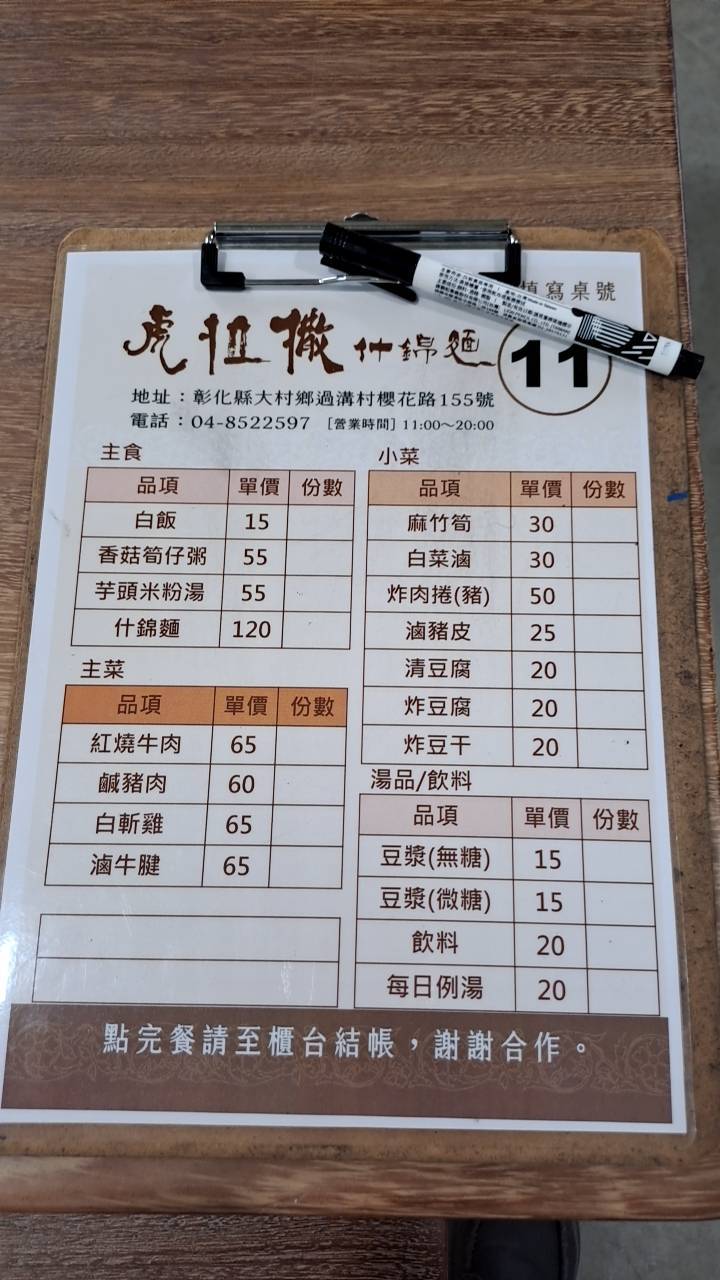 填寫桌號
虎扭撒什錦麵
11
地址：彰化縣大村鄉過溝村櫻花路155號
電話：04-8522597 [營業時間] 11:00～20:00
主食
品項 單價 份數
白飯 15
香菇筍仔粥 55
芋頭米粉湯 55
什錦麵 120
主菜
品項 單價 份數
紅燒牛肉 65
鹹豬肉 60
白斬雞 65
滷牛腱 65
小菜
品項 單價 份數
麻竹筍 30
白菜滷 30
炸肉捲(豬) 50
滷豬皮 25
清豆腐 20
炸豆腐 20
炸豆干 20
湯品/飲料
品項 單價 份數
豆漿(無糖) 15
豆漿(微糖) 15
飲料 20
每日例湯 20
點完餐請至櫃台結帳，謝謝合作。